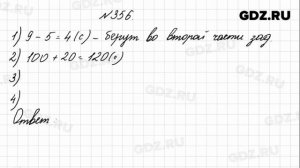 GDZ.RU
№356
1) 9 - 5 = 4 (с) - берут во второй части зад.
2) 100 + 20 = 120 (с)
3)
4)
Ответ